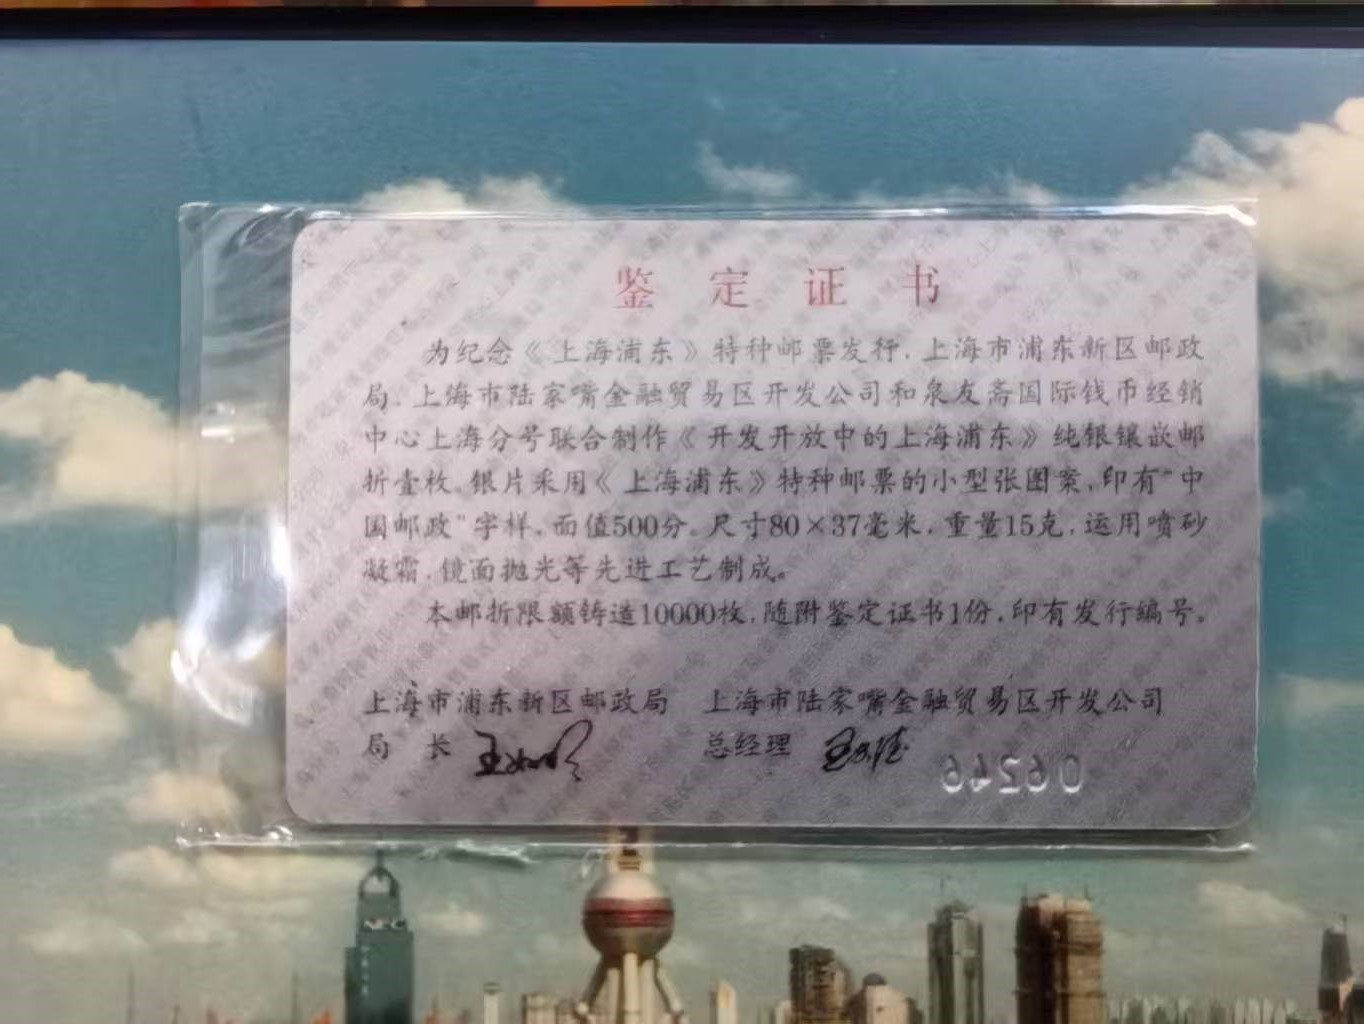 鉴定证书
为纪念《上海浦东》特种邮票发行，上海市浦东新区邮政
局、上海市陆家嘴金融贸易区开发公司和泉友斋国际钱币经销
中心上海分号联合制作《开发开放中的上海浦东》纯银镶嵌邮
折壹枚。银片采用《上海浦东》特种邮票的小型张图案，印有“中
国邮政”字样，面值500分。尺寸80×37毫米，重量15克，运用喷砂
凝霜，镜面抛光等先进工艺制成。
本邮折限额铸造10000枚，随附鉴定证书1份，印有发行编号。
上海市浦东新区邮政局 上海市陆家嘴金融贸易区开发公司
局 长 总经理
06246